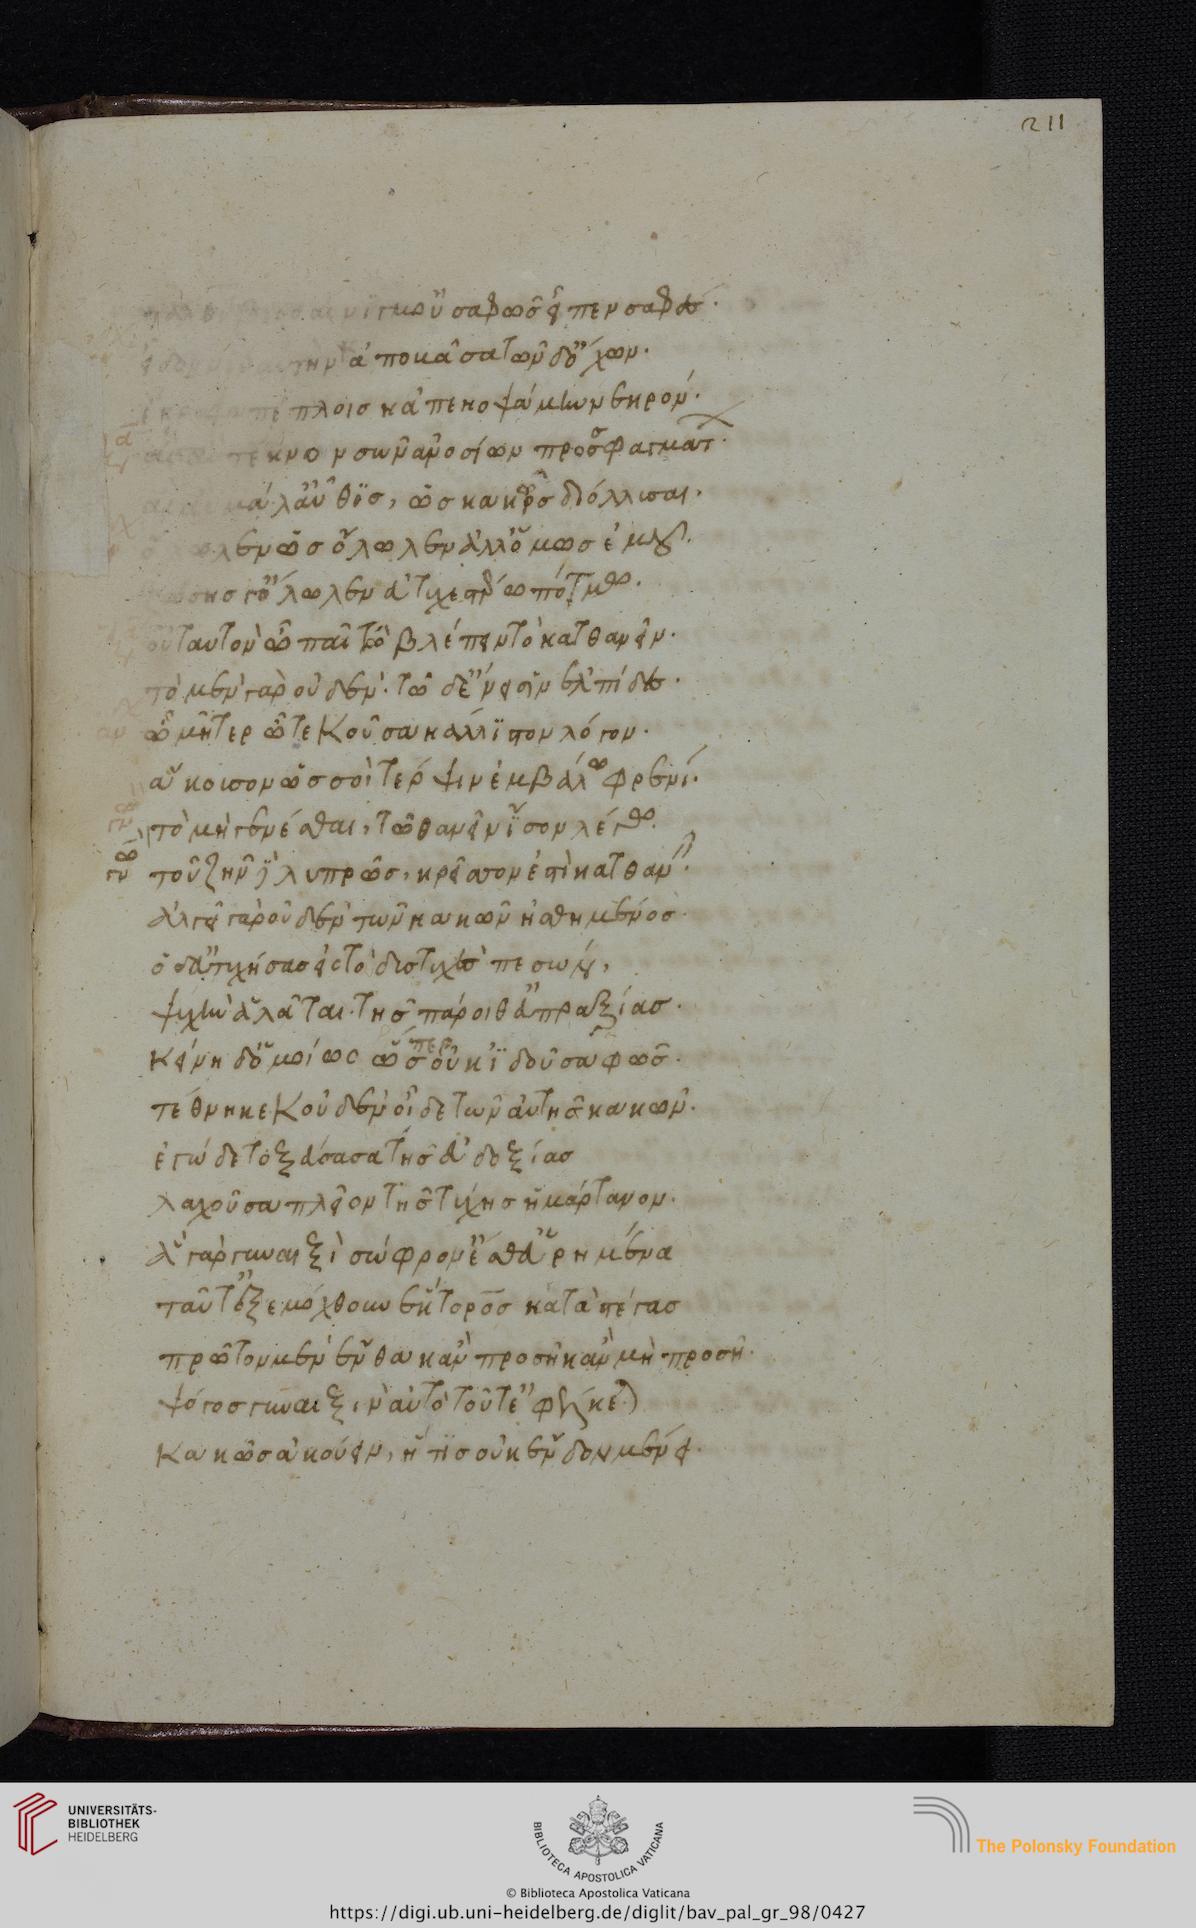 211
μοῦ σαφῶς εἶπεν σαφῶς.
ἀποβᾶσα τῶνδ' ὄχων.
πέπλοις κἀπεκοψάμην νεκρόν.
τέκνον σῶν ἀνοσίων προσφαγμάτ.
μάλ' αὖθις, ὡς κακῶς διόλλυσαι.
ὄλωλεν ὡς ὄλωλεν ἀλλ' ὅμως ἐμοῦ
γ' ὄλωλεν εὐτυχεστέρω πότμω.
οὐ ταυτὸν ὦ παῖ τῶ βλέπειν τὸ κατθανεῖν.
τὸ μὲν γὰρ οὐδὲν. τῶ δ' ἔνεισιν ἐλπίδες.
ὦ μῆτερ ὦ τεκοῦσα κάλλιστον λόγον.
ἄκουσον ὥς σοι τέρψιν ἐμβάλω φρενί.
τὸ μὴ γενέσθαι, τῶ θανεῖν ἴσον λέγω.
τοῦ ζῆν δὲ λυπρῶς, κρεῖσσον ἐστὶ κατθανεῖν.
ἀλγεῖ γὰρ οὐδὲν τῶν κακῶν ἠσθημένος
ὁ δ' εὐτυχήσας εἰς τὸ δυστυχὲς πεσὼν,
ψυχὴν ἀλᾶται τῆς πάροιθ' εὐπραξίας.
κείνη δ' ὁμοίως ὥσπερ οὐκ ἰδοῦσα φῶς.
τέθνηκε κοὐδὲν οἶδε τῶν αὑτῆς κακῶν.
ἐγώ δὲ τοξάσασα τῆς εὐδοξίας
λαχοῦσα πλεῖον τῆς τύχης ἡμάρτανον.
ἃ γὰρ γυναιξὶ σώφρον' ἔσθ' εὑρημένα
ταῦτ' ἐξεμόχθουν ἕκτορος κατὰ στέγας
πρῶτον μὲν ἔνθα κἂν προσῆ κἂν μὴ προσῆ.
ψόγος γυναιξὶν αὐτὸ τοῦτ' ἐφέλκεται
κακῶς ἀκούειν, ἥτις οὐκ ἔνδον μένει.
UNIVERSITÄTS-
BIBLIOTHEK
HEIDELBERG
BIBLIOTECA APOSTOLICA VATICANA
© Biblioteca Apostolica Vaticana
The Polonsky Foundation
https://digi.ub.uni-heidelberg.de/diglit/bav_pal_gr_98/0427